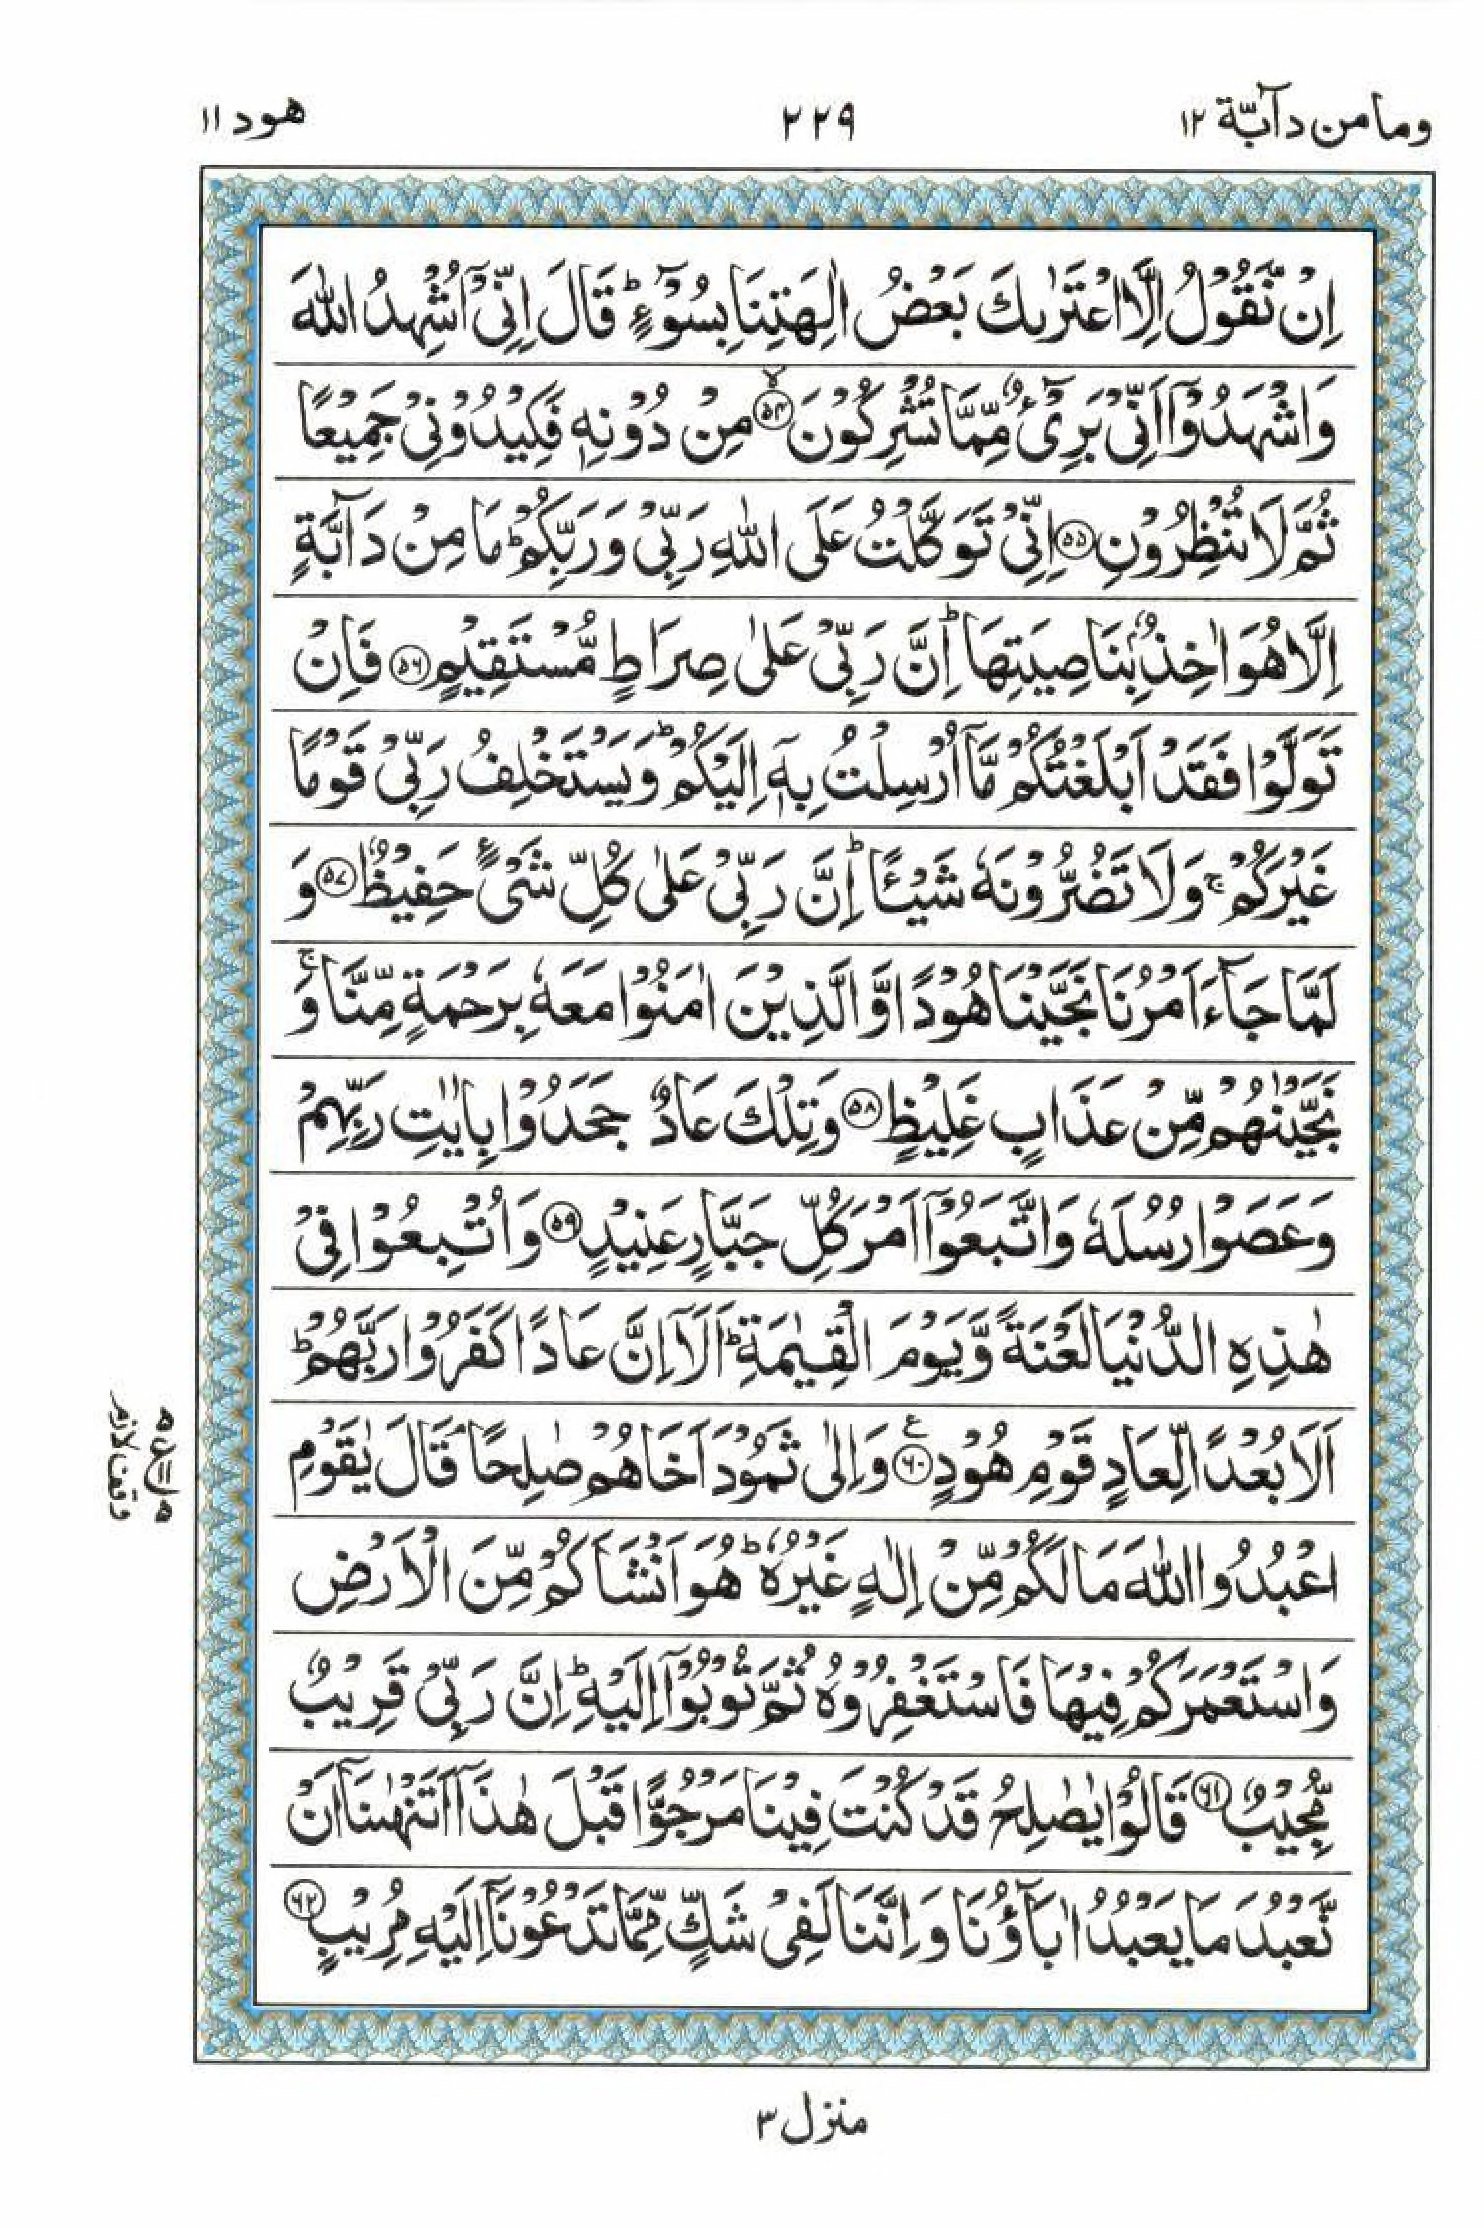 وما من دآبّة ١٢
٢٢٩
هود ١١
اِنْ نَّقُوْلُ اِلَّا اعْتَرٰىكَ بَعْضُ اٰلِهَتِنَا بِسُوْٓءٍ ؕ قَالَ اِنِّىْٓ اُشْهِدُ اللّٰهَ
وَاشْهَدُوْٓا اَنِّىْ بَرِىْٓءٌ مِّمَّا تُشْرِكُوْنَ ۙ﴿۵۴﴾ مِنْ دُوْنِهٖ فَكِيْدُوْنِىْ جَمِيْعًا
ثُمَّ لَا تُنْظِرُوْنِ ﴿۵۵﴾ اِنِّىْ تَوَكَّلْتُ عَلَى اللّٰهِ رَبِّىْ وَرَبِّكُمْ ؕ مَا مِنْ دَآبَّةٍ
اِلَّا هُوَ اٰخِذٌۢ بِنَاصِيَتِهَا ؕ اِنَّ رَبِّىْ عَلٰى صِرَاطٍ مُّسْتَقِيْمٍ ﴿۵۶﴾ فَاِنْ
تَوَلَّوْا فَقَدْ اَبْلَغْتُكُمْ مَّآ اُرْسِلْتُ بِهٖٓ اِلَيْكُمْ ؕ وَيَسْتَخْلِفُ رَبِّىْ قَوْمًا
غَيْرَكُمْ ۚ وَلَا تَضُرُّوْنَهٗ شَيْـًٔا ؕ اِنَّ رَبِّىْ عَلٰى كُلِّ شَىْءٍ حَفِيْظٌ ﴿۵۷﴾ وَ
لَمَّا جَآءَ اَمْرُنَا نَجَّيْنَا هُوْدًا وَّالَّذِيْنَ اٰمَنُوْا مَعَهٗ بِرَحْمَةٍ مِّنَّا ۚ وَ
نَجَّيْنٰهُمْ مِّنْ عَذَابٍ غَلِيْظٍ ﴿۵۸﴾ وَتِلْكَ عَادٌ جَحَدُوْا بِاٰيٰتِ رَبِّهِمْ
وَعَصَوْا رُسُلَهٗ وَاتَّبَعُوْٓا اَمْرَ كُلِّ جَبَّارٍ عَنِيْدٍ ﴿۵۹﴾ وَاُتْبِعُوْا فِىْ
هٰذِهِ الدُّنْيَا لَعْنَةً وَّيَوْمَ الْقِيٰمَةِ ؕ اَلَآ اِنَّ عَادًا كَفَرُوْا رَبَّهُمْ ؕ
اَلَا بُعْدًا لِّعَادٍ قَوْمِ هُوْدٍ ﴿۶۰﴾ ع وَاِلٰى ثَمُوْدَ اَخَاهُمْ صٰلِحًا ۘ قَالَ يٰقَوْمِ
اعْبُدُوا اللّٰهَ مَا لَكُمْ مِّنْ اِلٰهٍ غَيْرُهٗ ؕ هُوَ اَنْشَاَكُمْ مِّنَ الْاَرْضِ
وَاسْتَعْمَرَكُمْ فِيْهَا فَاسْتَغْفِرُوْهُ ثُمَّ تُوْبُوْٓا اِلَيْهِ ؕ اِنَّ رَبِّىْ قَرِيْبٌ
مُّجِيْبٌ ﴿۶۱﴾ قَالُوْا يٰصٰلِحُ قَدْ كُنْتَ فِيْنَا مَرْجُوًّا قَبْلَ هٰذَآ اَتَنْهٰىنَآ اَنْ
نَّعْبُدَ مَا يَعْبُدُ اٰبَآؤُنَا وَاِنَّنَا لَفِىْ شَكٍّ مِّمَّا تَدْعُوْنَآ اِلَيْهِ مُرِيْبٍ ﴿۶۲﴾
وقف لازم
منزل ٣